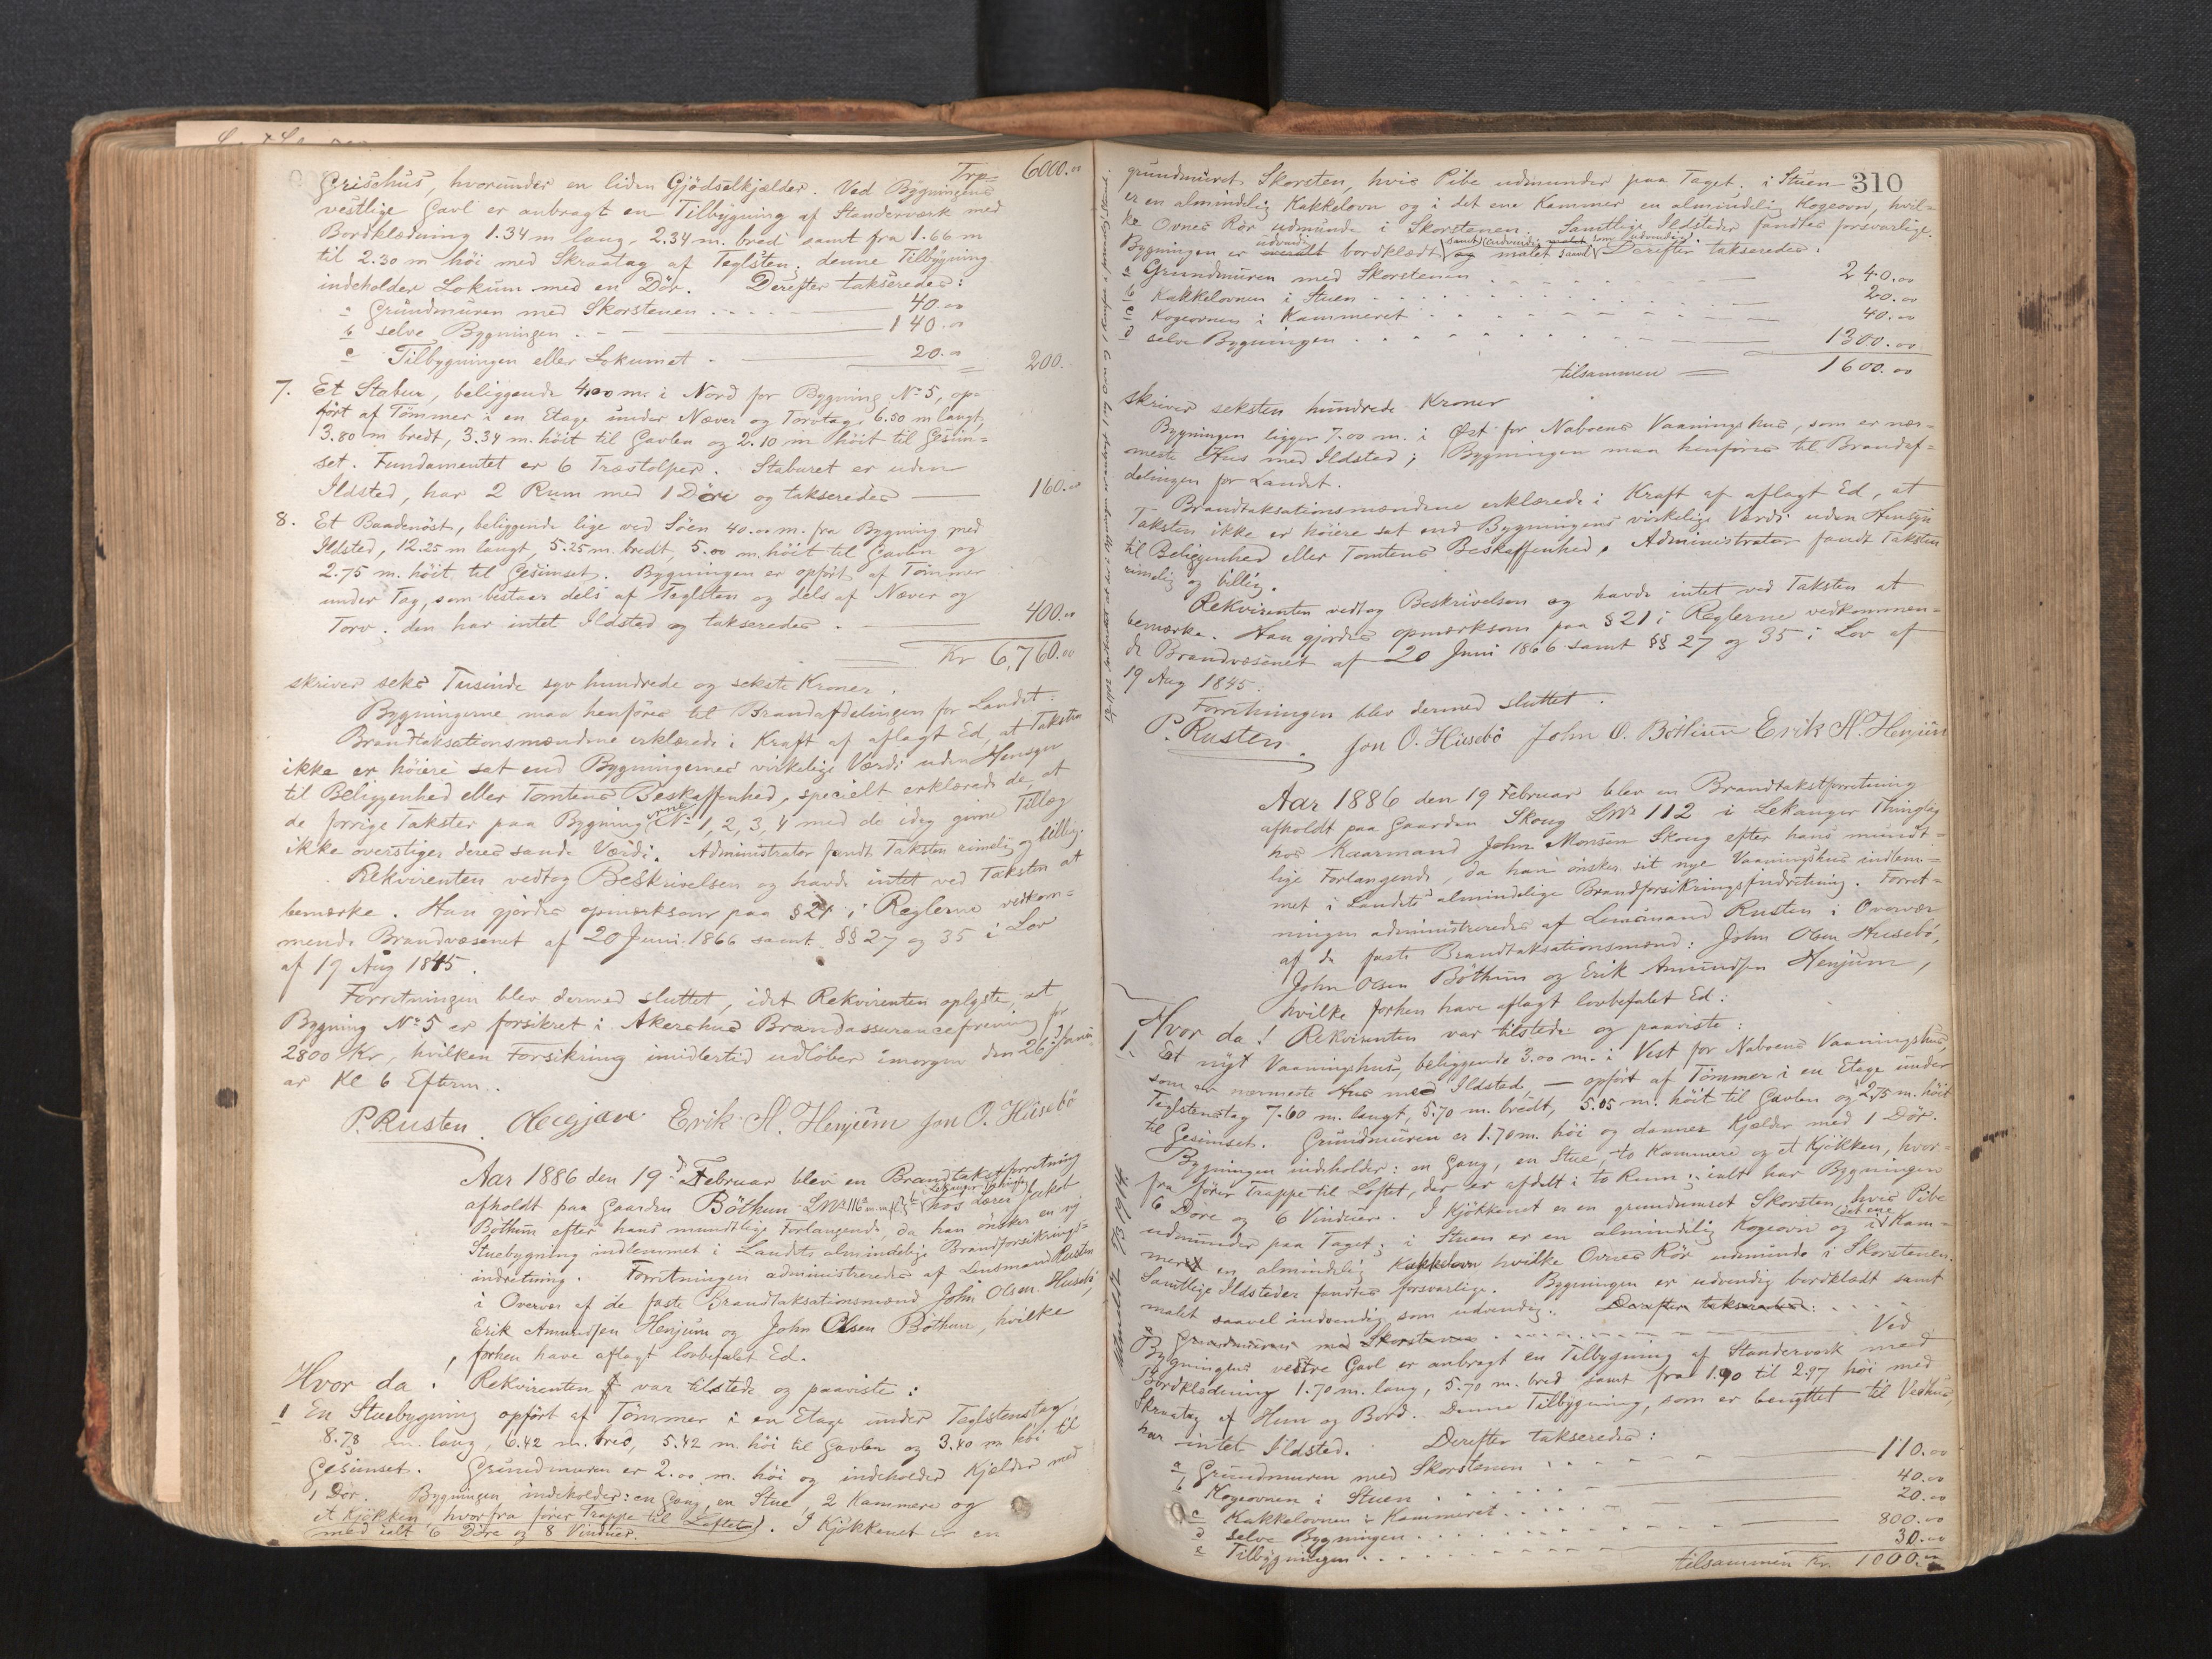 Trp= 6000.00
Grisehus, hvorunder en liden Gjödselkjælder. Ved Bygningens
vestlige Gavl er anbragt en Tilbygning af Standerværk med
Bordklædning 1.34 m lang, 2.34 m. bred samt fra 1.66 m
til 2.30 m höi med Skraatag af Teglsten; denne Tilbygning
indeholder Lokum med en Dör. Derefter takseredes:
a Grundmuren med Skorstenen 40.00
b selve Bygningen 140.00
c Tilbygningen eller Lokumet 20.00 200.
7. Et Stabur, beliggende 4,00 m. i Nord for Bygning No 5, op-
fört af Tömmer i en Etage under Næver og Torvtag, 6.50 m langt,
3.80 m bredt, 3.34 m. höit til Gavlen og 2.10 m höit til Gesim-
set. Fundamentet er 6 Træstolper. Staburet er uden
Ildsted, har 2 Rum med 1 Döre og takseredes 160.00
8. Et Baadenöst, beliggende lige ved Söen 40.00 m. fra Bygning med
Ildsted, 12.25 m langt, 5.25 m. bredt, 5.00 m. höit til Gavlen og
2.75 m. höit til Gesimset. Bygningen er opfört af Tömmer
under Tag, som bestaar dels af Teglsten og dels af Næver og
Torv; den har intet Ildsted og takseredes 400.00
Kr 6,760.00
skriver seks Tusinde syv hundrede og sekste Kroner.
Bygningerne maa henföres til Brandafdelingen for Landet.
Brandtaksationsmændene erklærede i Kraft af aflagt Ed, at Taksten
ikke er höiere sat end Bygningernes virkelige Værdi uden Hensyn
til Beliggenhed eller Tomtens Beskaffenhed, specielt erklærede de, at
de forrige Takster paa Bygningerne No 1, 2, 3, 4 med de idag givne Tillæg
ikke overstiger deres sande Værdi. Administrator fandt Taksten rimelig og billig.
Rekvirenten vedtog Beskrivelsen og havde intet ved Taksten at
bemærke. Han gjordes opmærksom paa § 21 i Reglerne vedkom-
mende Brandvæsenet af 20 Juni 1866 samt §§ 27 og 35 i Lov
af 19 Aug 1845.
Forretningen blev dermed sluttet, idet Rekvirenten oplyste, at
Bygning No 5 er forsikret i Akershus Brandassuranceforening for
2800 Kr, hvilken Forsikring imidlertid udlöber imorgen den 26 Janu-
ar Kl 6 Efterm.
P. Rusten. Erik A. Henjum Jon O. Husebö
Aar 1886 den 19d Februar blev en Brandtakstforretning
afholdt paa Gaarden Böthun LNr 116 Lekanger Thinglag hos Lærer Jakob
Böthun efter hans mundtlige Forlangende, da han önsker en ny
Stuebygning indlemmet i Landets almindelige Brandforsikrings-
indretning. Forretningen administreredes af Lensmand Rusten
i Overvær af de faste Brandtaksationsmænd John Olsen Husebö,
Erik Amundsen Henjum og John Olsen Böthun, hvilke
forhen have aflagt lovbefalet Ed.
Hvor da! Rekvirenten var tilstede og paaviste:
1 En Stuebygning opfört af Tömmer i en Etage under Teglstenstag,
8.78 m. lang, 6.42 m. bred, 5.42 m. höi til Gavlen og 3.40 m höi til
Gesimset. Grundmuren er 2.00 m. höi og indeholder Kjælder med
1 Dör. Bygningen indeholder: en Gang, en Stue, 2 Kammere og
et Kjökken, hvorfra förer Trappe til Loftet. I Kjökkenet er en
med ialt 6 Döre og 8 Vinduer.
310
grundmuret Skorsten, hvis Pibe udmunder paa Taget; i Stuen
er en almindelig Kakkelovn og i det ene Kammer en almindelig Kogeovn, hvil-
ke Ovnes Rör udmunde i Skorstenen. Samtlige Ildsteder fandtes forsvarlige.
Bygningen er udvendig bordklædt samt malet Derefter takseredes:
a Grundmuren med Skorstenen 240.00
b Kakkelovnen i Stuen 20.00
c Kogeovnen i Kammeret 40.00
d selve Bygningen 1300.00
tilsammen 1600.00
skriver seksten hundrede Kroner
Bygningen ligger 7.00 m. i Öst for Naboens Vaaningshus, som er nær-
meste Hus med Ildsted; Bygningen maa henföres til Brandaf-
delingen for Landet.
Brandtaksationsmændene erklærede i Kraft af aflagt Ed, at
Taksten ikke er höiere sat end Bygningens virkelige Værdi uden Hensyn
til Beliggenhed eller Tomtens Beskaffenhed. Administrator fandt Taksten
rimelig og billig.
Rekvirenten vedtog Beskrivelsen og havde intet ved Taksten at
bemærke. Han gjordes opmærksom paa § 21 i Reglerne vedkommen-
de Brandvæsenet af 20 Juni 1866 samt §§ 27 og 35 i Lov af
19 Aug 1845.
Forretningen blev dermed sluttet.
P. Rusten. Jon O. Husebö John O. Böthun Erik A. Henjum
Aar 1886 den 19 Februar blev en Brandtakstforretning
afholdt paa Gaarden Skoug LNr 112 i Lekanger Thinglag
hos Kaarmand John Monsen Skoug efter hans mundt-
lige Forlangende, da han önsker sit nye Vaaningshus indlem-
met i Landets almindelige Brandforsikringsindretning. Forret-
ningen administreredes af Lensmand Rusten i Overvær
af de faste Brandtaksationsmænd: John Olsen Husebö,
John Olsen Böthun og Erik Amundsen Henjum,
hvilke forhen have aflagt lovbefalet Ed:
Hvor da! Rekvirenten var tilstede og paaviste:
1. Et nyt Vaaningshus, beliggende 3.00 m. i Vest for Naboens Vaaningshus,
som er nærmeste Hus med Ildsted, — opfört af Tömmer i en Etage under
Teglstenstag 7.60 m. langt, 5.70 m. bredt, 5.05 m. höit til Gavlen og 2.75 m. höit
til Gesimset. Grundmuren er 1.70 m. höi og danner Kjælder med 1 Dör.
Bygningen indeholder: en Gang, en Stue, to Kammere og et Kjökken, hvor-
fra förer Trappe til Loftet, der er afdelt i to Rum; ialt har Bygningen
6 Döre og 6 Vinduer. I Kjökkenet er en grundmuret Skorsten, hvis Pibe
udmunder paa Taget; i Stuen er en almindelig Kogeovn og i det ene Kam-
mer en almindelig Kakkelovn hvilke Ovnes Rör udmunde i Skorstenen.
Samtlige Ildsteder fandtes forsvarlige. Bygningen er udvendig bordklædt samt
malt saavel indvendig som udvendig. Derefter takseredes:
a Grundmuren med Skorstenen Ved
Bygningens vestre Gavl er anbragt en Tilbygning af Standerværk med
Bordklædning 1.70 m. lang, 5.70 m. bred samt fra 1.90 til 2.97 höi med
Skraatag af Hun og Bord. Denne Tilbygning, som er benyttet til Vedhus,
har intet Ildsted. Derefter takseredes:
a Grundmuren med Skorstenen 110.00
b Kogeovnen i Stuen 40.00
c Kakkelovnen i Kammeret 20.00
d selve Bygningen 800.00
e Tilbygningen 30.00
tilsammen Kr. 1000.00